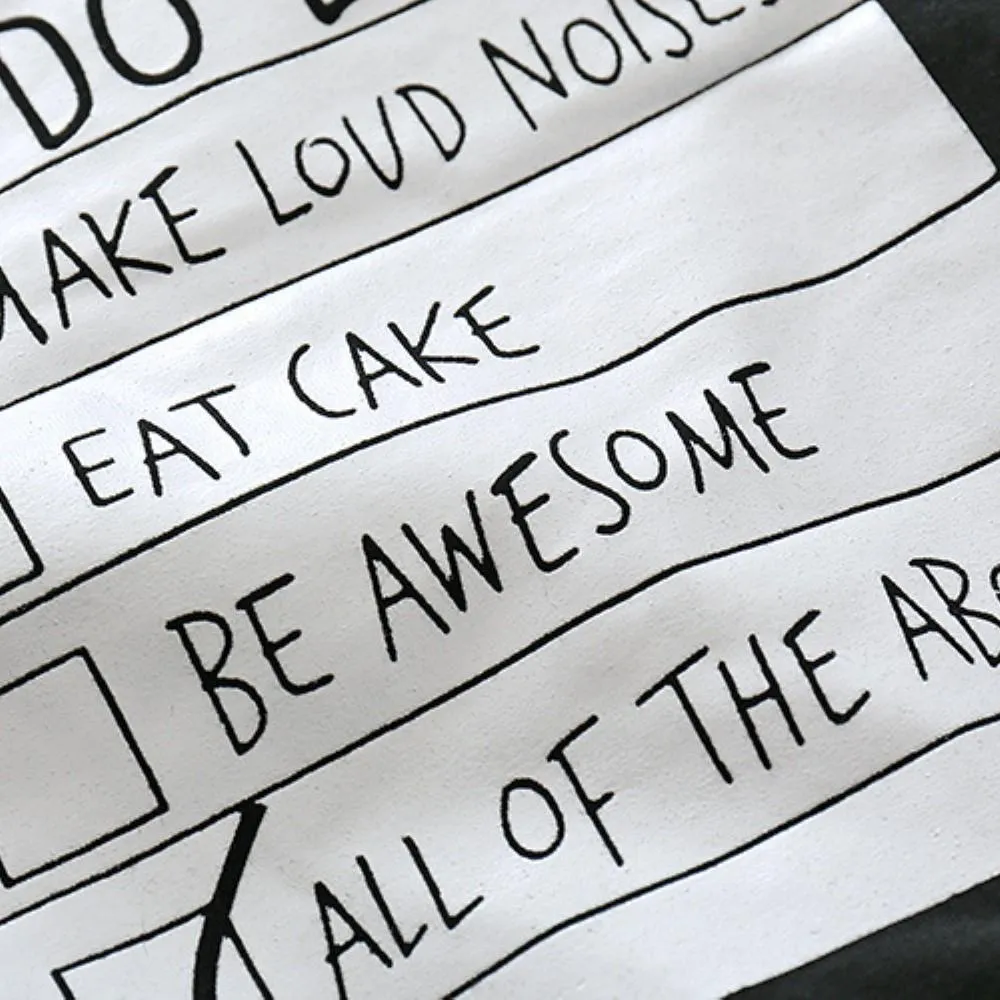 DO
MAKE LOUD NOISE
EAT CAKE
BE AWESOME
ALL OF THE